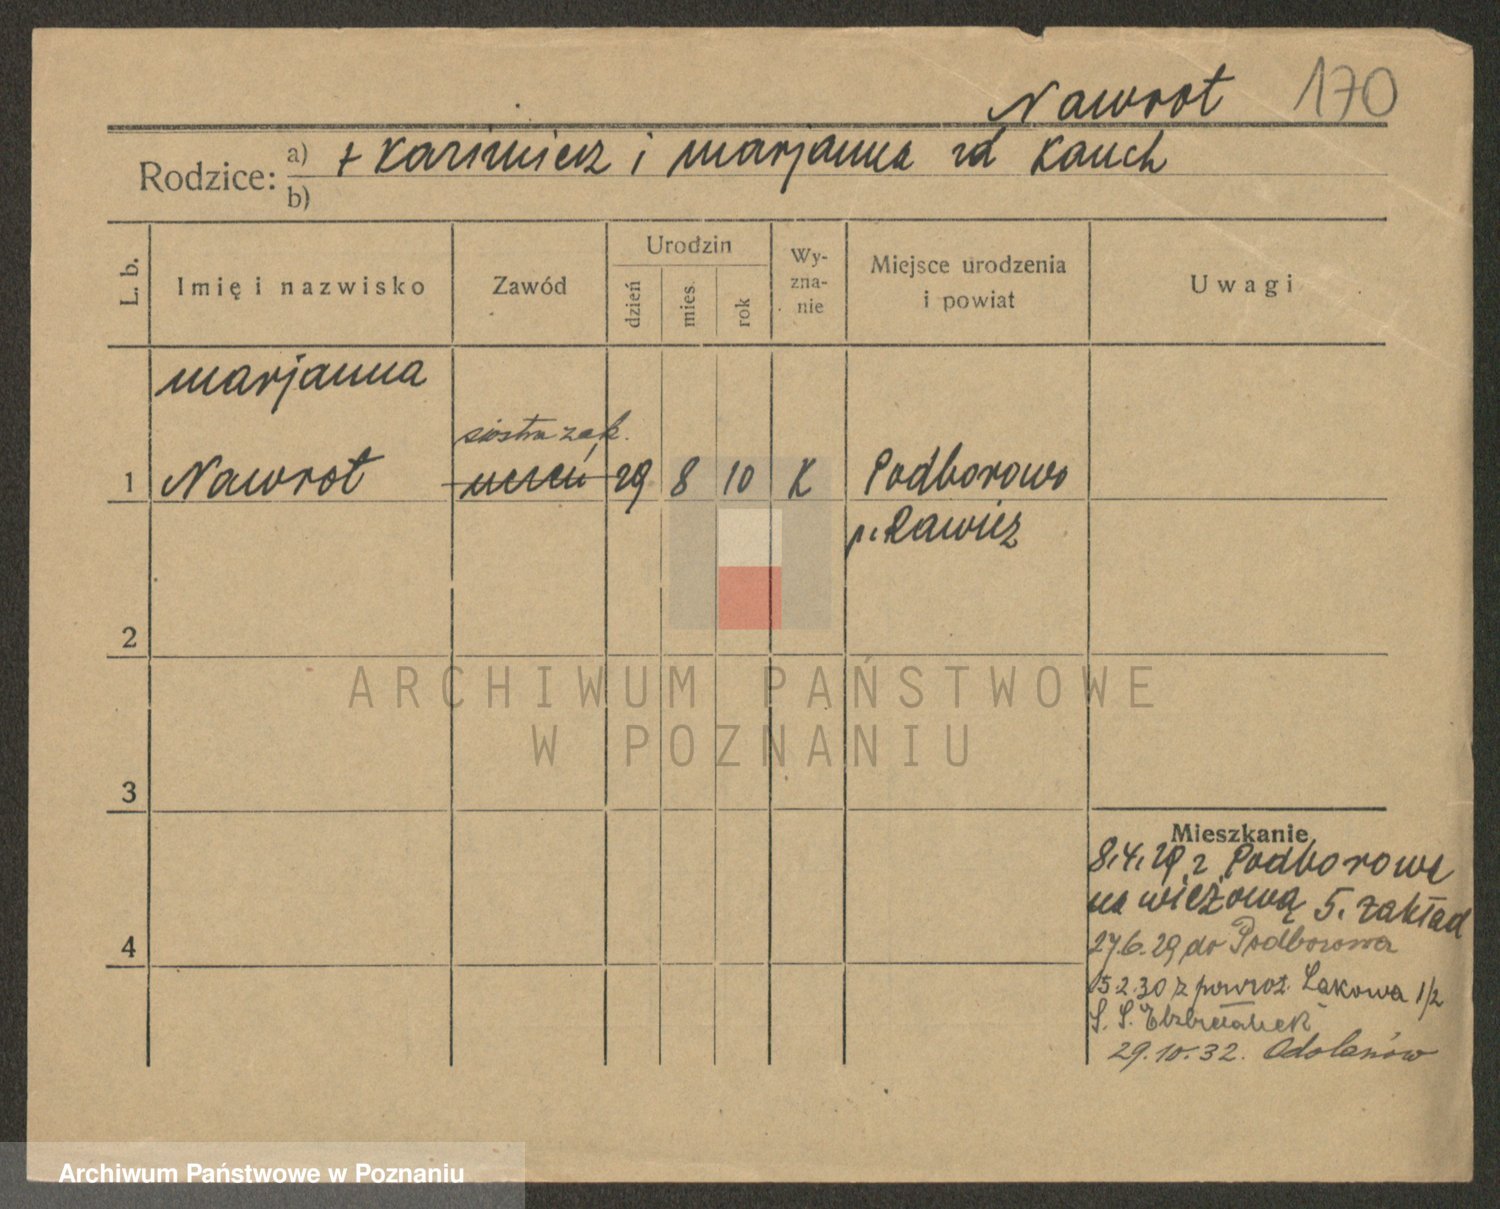 Nawrot 170
Rodzice: a) + Kazimierz i Marjanna zd Kauch
b)
L. b. Imię i nazwisko Zawód Urodzin dzień mies. rok Wy-zna-nie Miejsce urodzenia i powiat Uwagi
Marjanna
siostra zak.
1 Nawrot uczeń 29 8 10 K Podborowo
p. Rawicz
2
ARCHIWUM PAŃSTWOWE
W POZNANIU
3
Mieszkanie
8.4.29 z Podborowa
na Wieżową 5. zakład
4
27.6.29 do Podborowa
15.2.30 z powrot. Łąkowa 1/2
S. S. Elżbietanek
29.10.32. Odolanów
Archiwum Państwowe w Poznaniu